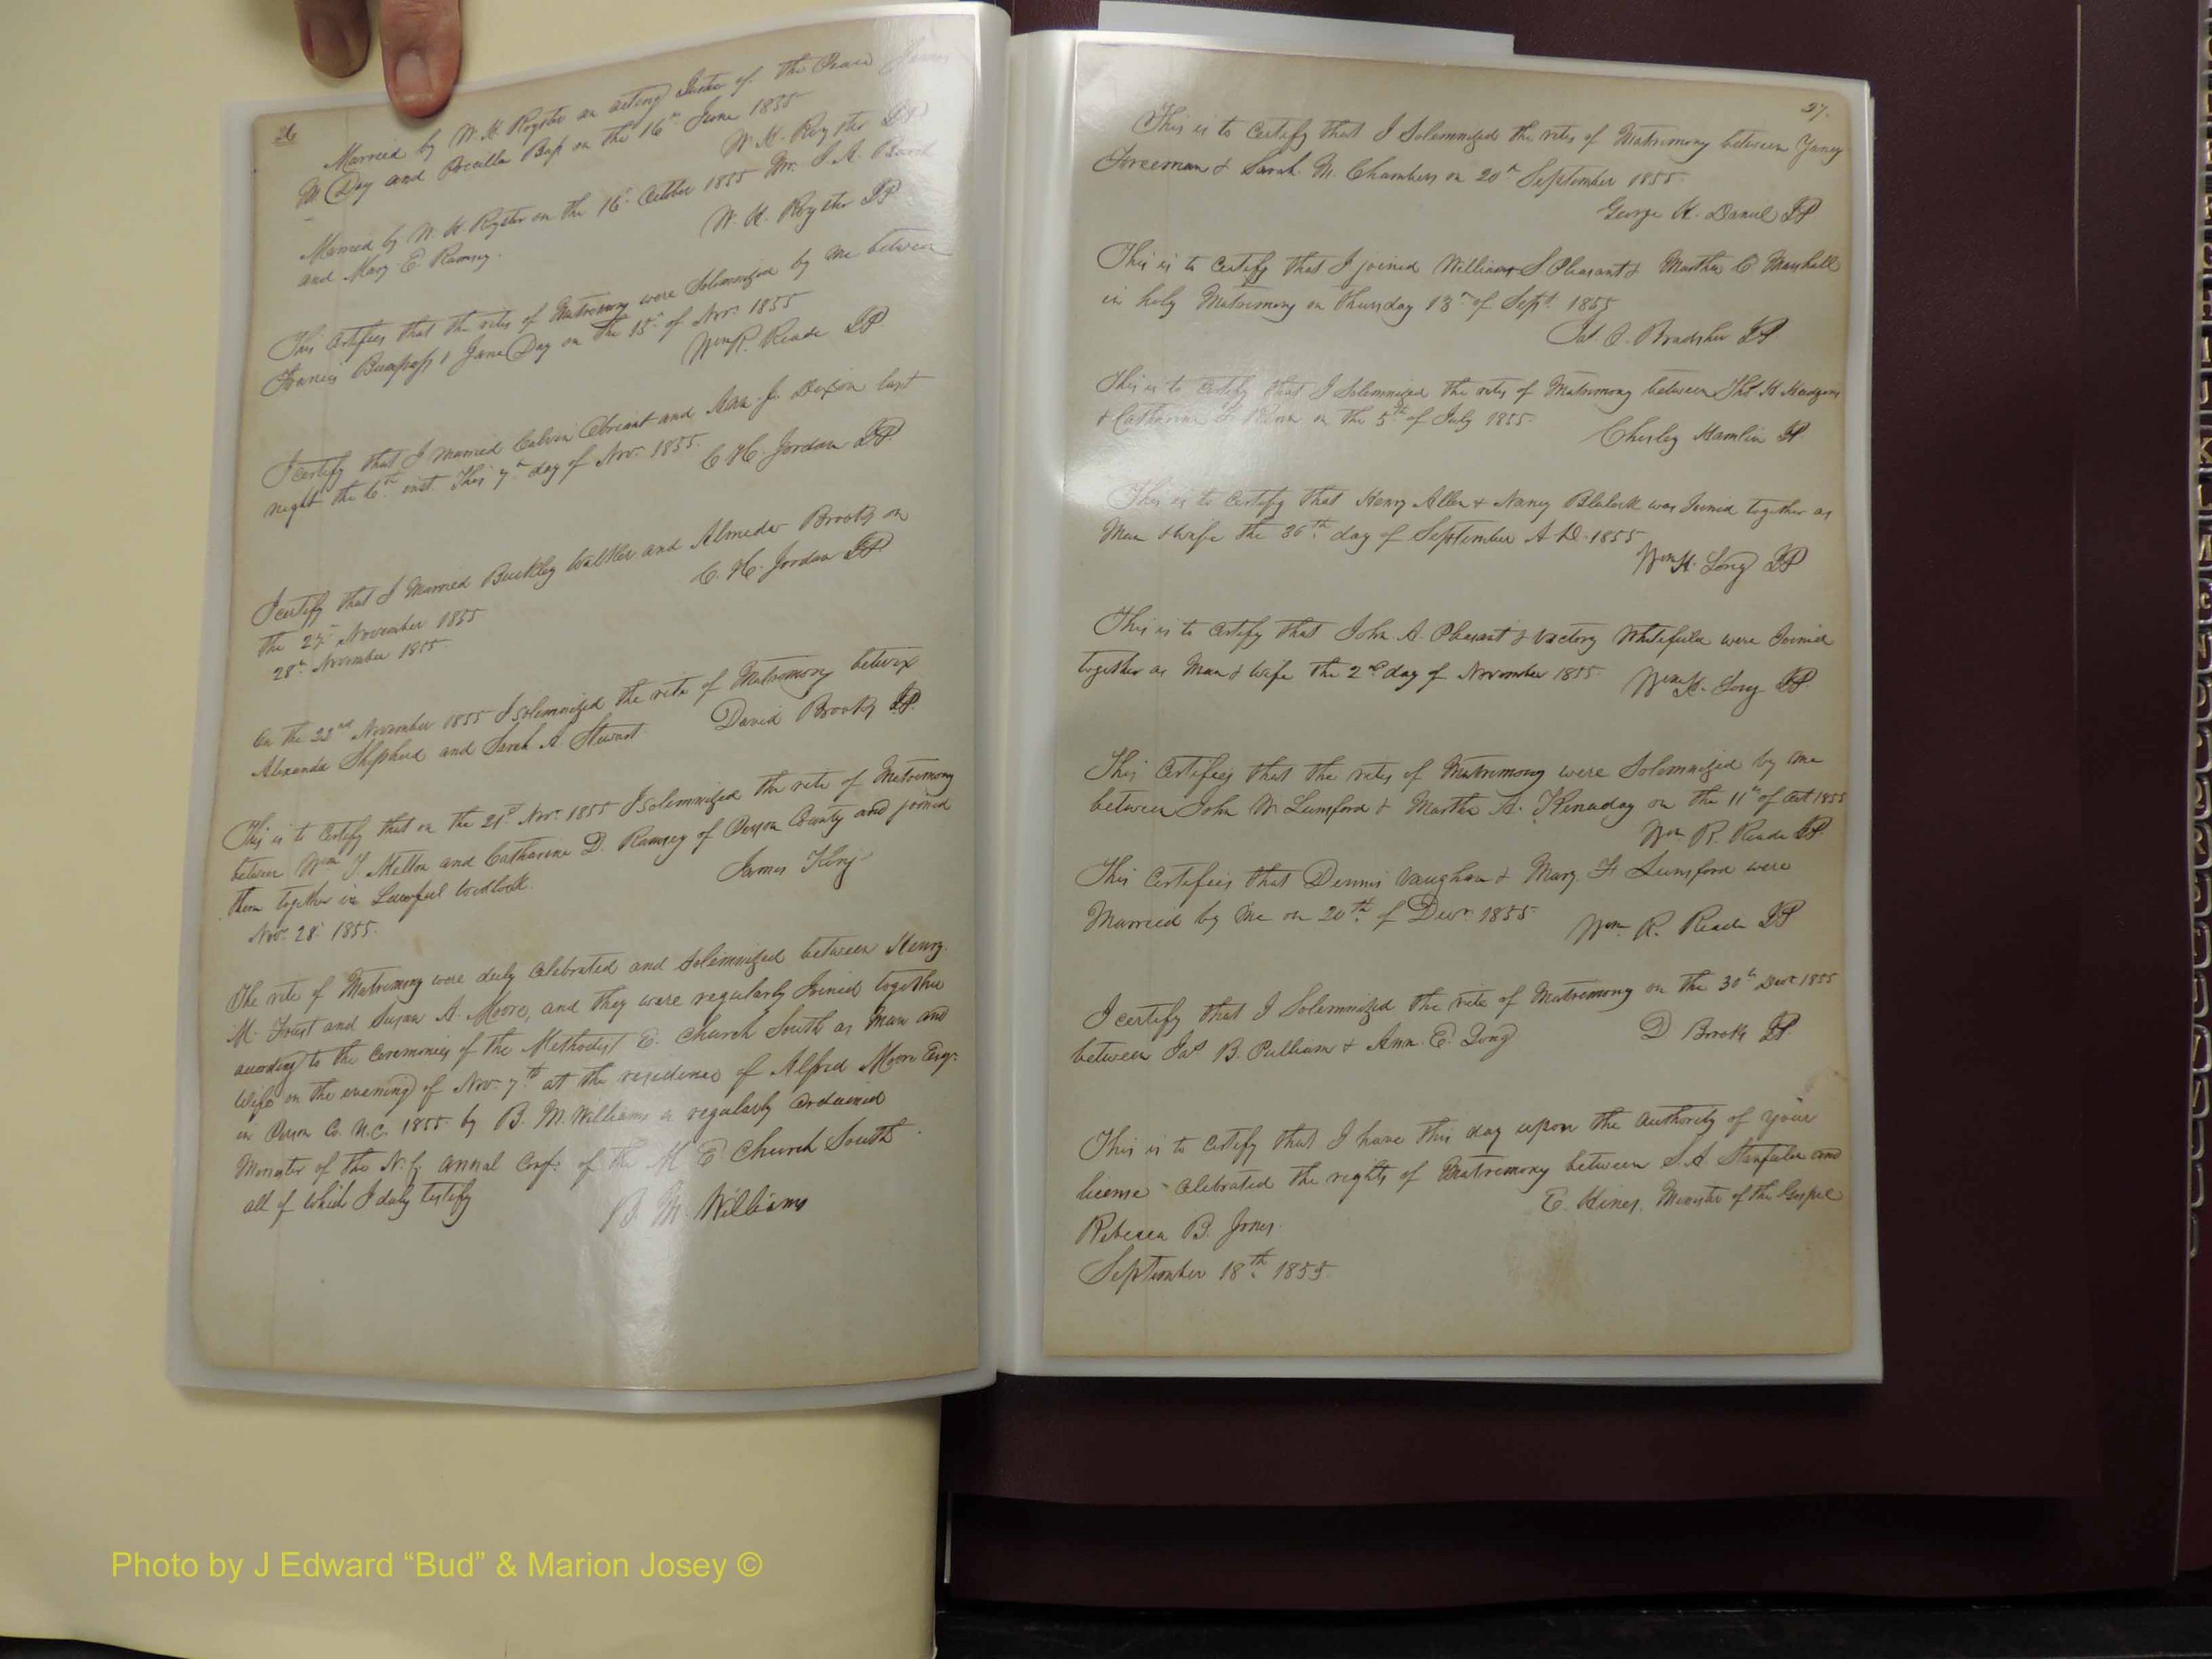 26
Married by W. H. Royster an acting Justice of the Peace James
M. Day and Pricilla Bass on the 16th June 1855
W. H. Royster JP
Married by W. H. Royster on the 16th October 1855 Mr. S. A.
and Mary E. Ramsey.
W. H. Royster JP
This Certifies that the rites of Matrimony were Solemnized by me between
Francis Bumpass & Jane Day on the 15th of Nov. 1855
Wm R. Reade JP
I certify that I married Calvin Obriant and Ann J. Dixon last
night the 6th inst. This 7th day of Nov. 1855.
C. H. Jordan JP
I certify that I Married Buckley Walker and Almeda Brooks on
the 27th November 1855
C. H. Jordan JP
28th November 1855
On the 22nd November 1855 I solemnized the rite of Matrimony betwix
Alexander Shepherd and Sarah A. Stewart
David Brooks JP.
This is to Certify that on the 21st Nov. 1855 I solemnized the rite of Matrimony
between Wm T. Melton and Catharine D. Ramsey of Person County and joined
them together in Lawful wedlock.
James King
Nov. 28. 1855.
The rite of Matrimony were duly celebrated and solemnized between Henry
M. Foust and Susan A. Moore, and they were regularly Joined together
according to the Ceremonies of the Methodist E. Church South as Man and
Wife on the evening of Nov. 7th at the residence of Alfred Moore Esqr.
in Person Co. N.C. 1855 by B. M. Williams a regularly Ordained
Minister of the N.C. annal Conf. of the M E Church South
all of which I duly testify
B. M. Williams
27.
This is to Certify that I Solemnized the rites of Matrimony between Yancy
Foreeman & Sarah M. Chambers on 20th September 1855.
George K. Daniel JP
This is to Certify that I joined William S. Pleasant & Martha C. Marshall
in holy Matrimony on thursday 13th of Sept. 1855
Jas. O. Bradsher JP.
This is to Certify that I Solemnized the rites of Matrimony between Thos. H. Hudgins
& Catharine on the 5th of July 1855.
Chesley Hamlin JP
This is to Certify that Henry Allen & Nancy Blalock was Joined together as
Man & wife the 30th day of September A D. 1855
Wm H. Long JP
This is to Certify that John A. Pleasant & Victory Whitefield were Joined
together as Man & Wife the 2nd day of November 1855.
Wm H. Long JP.
This Certifies that the rites of Matrimony were Solemnized by me
between John W. Lunsford & Martha A. Kenaday on the 11th of Oct 1855
Wm R. Reade JP.
This Certifies that Dennis Vaughan & Mary F. Lunsford were
Married by me on 20th of Decr. 1855.
Wm. R. Reade JP
I certify that I Solemnized the rite of Matrimony on the 30th Decr 1855
between Jas B. Pulliam & Ann. E. Long
D Brooks JP.
This is to Certify that I have this day upon the authority of your
license Celebrated the rights of Matrimony between S. A. Stanfield and
Rebecca B. Jones.
E. Hines, Minister of the Gospel
September 18th 1855
Photo by J Edward “Bud” & Marion Josey ©